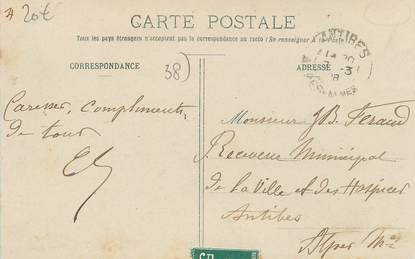 20€
CARTE POSTALE
Tous les pays étrangers n'acceptent pas la correspondance au recto (Se renseigner à la Poste)
CORRESPONDANCE
38
ADRESSE
ANTIBES
Caresses, compliments
de tout
Monsieur J B. Feraud
Receveur Municipal
de la Ville et des Hospices
Antibes
Alpes Mmes